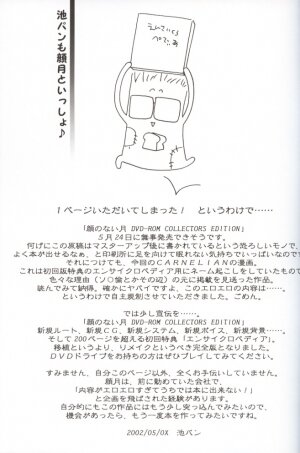 池パンも顔月といっしょ♪
1ページいただいてしまった! というわけで……
「顔のない月 DVD-ROM COLLECTORS EDITION」
5月24日に無事発売できそうです。
何げにこの原稿はマスターアップ後に書かれているという恐ろしいモノで、
よく本が出せるなぁ、と印刷所に足を向けて眠れない気持ちでいっぱいなので
それにつけても、今回のCARNELIANの漫画。
これは初回版特典のエンサイクロペディア用にネーム起こしをしていたもので
色々な理由(ソ○倫とかその辺)の元に掲載を見送った作品。
読んでみて納得。確かにヤバイですよ、このエロエロの内容は……
というわけで自主規制させていただきました。ごめん。
では少し宣伝を……
「顔のない月 DVD-ROM COLLECTORS EDITION」
新規ルート、新規CG、新規システム、新規ボイス、新規背景……。
そして200ページを超える初回特典「エンサイクロペディア」。
移植というより、リメイクというべき完全版となりました。
DVDドライブをお持ちの方はぜひプレイしてみてください。
すみません、自分このページ以外、全くお手伝いしていません。
顔月は、前に勤めていた会社で、
「内容がエロエロすぎてうちでは本に出来ない!」
と企画を飛ばされた経験があります。
自分的にもこの作品にはもう少し突っ込んでみたいので、
機会があったら、もう一度本を作ってみたいですね。
2002/05/0X 池パン